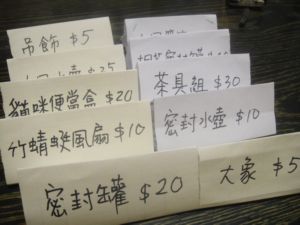 吊飾 $5
$25
貓咪便當盒 $20
竹蜻蜓風扇 $10
密封罐 $20
茶具組 $30
密封水壺 $10
大象 $5